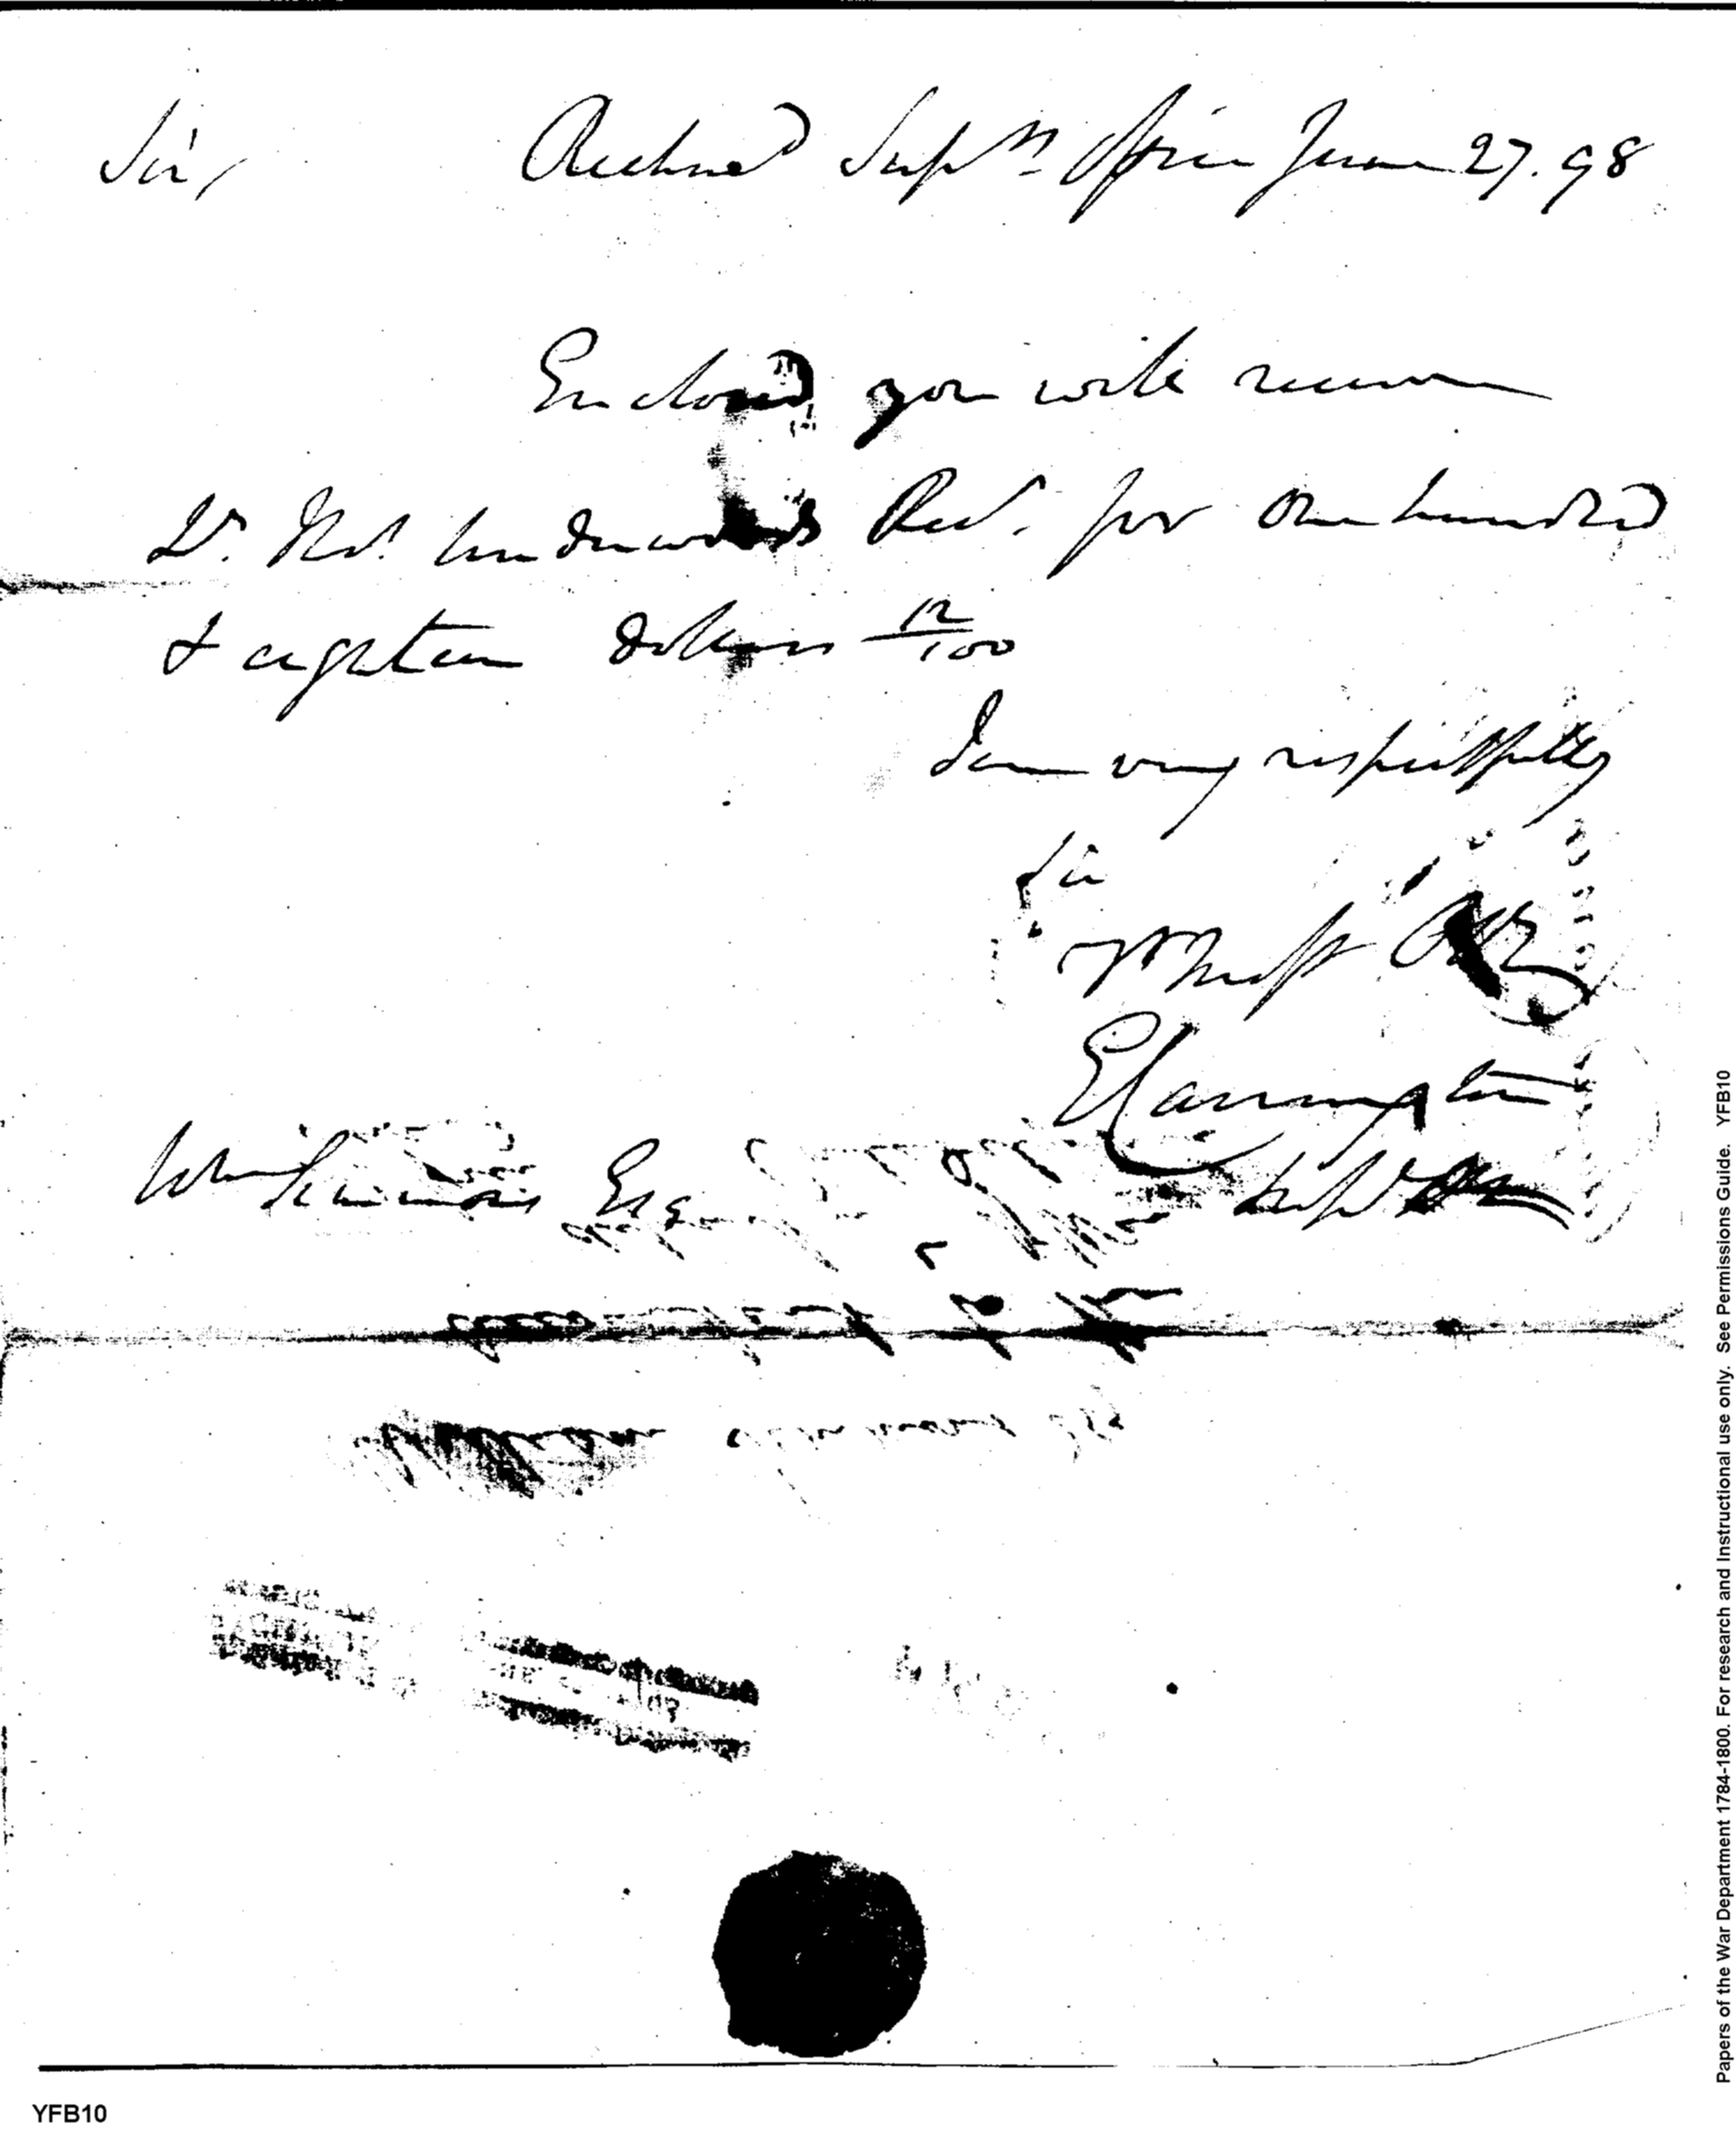 Sir, Richmd Suprs Office June 27. 98
Enclosed you will receive
Dr. Rect. for One hundred
& eighteen dollars 12/100
I am very respectfully
Sir
Yr Most Obt
E Carrington
Wm Simmons Esq
YFB10
Papers of the War Department 1784-1800. For research and Instructional use only. See Permissions Guide. YFB10